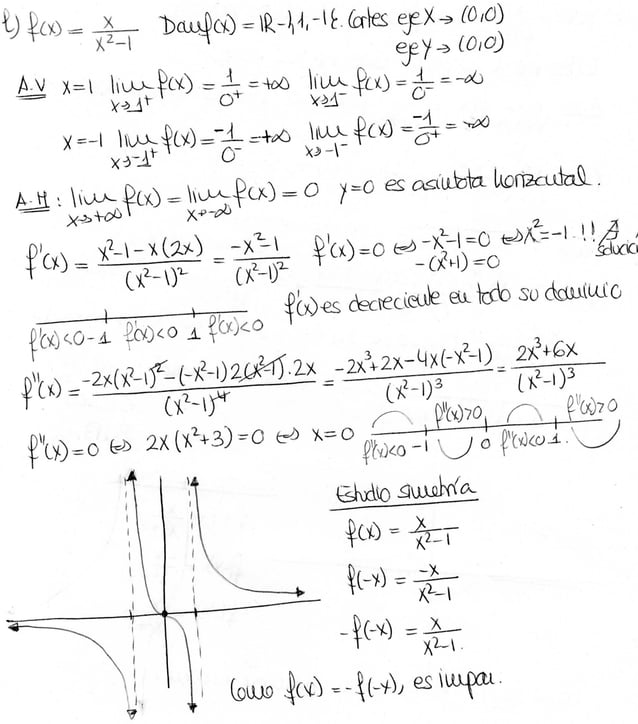 b) f(x) = x/(x²-1) Domf(x) = IR-{1,-1}. Cortes eje X → (0,0)
eje Y → (0,0)
A.V x=1 lim x→1⁺ f(x) = 1/0⁺ = +∞ lim x→1⁻ f(x) = 1/0⁻ = -∞
x=-1 lim x→-1⁺ f(x) = -1/0⁻ = +∞ lim x→-1⁻ f(x) = -1/0⁺ = -∞
A.H: lim x→+∞ f(x) = lim x→-∞ f(x) = 0 y=0 es asíntota horizontal.
f'(x) = (x²-1-x(2x))/(x²-1)² = (-x²-1)/(x²-1)² f'(x)=0 ⇔ -x²-1=0 ⇔ x²=-1 !! ∄
-(x²+1)=0 solució
f'(x)<0 -1 f'(x)<0 1 f'(x)<0 f'(x) es decreciente en todo su dominio
f''(x) = (-2x(x²-1)²-(-x²-1)2(x²-1)·2x)/(x²-1)⁴ = (-2x³+2x-4x(-x²-1))/(x²-1)³ = (2x³+6x)/(x²-1)³
f''(x)=0 ⇔ 2x(x²+3)=0 ⇔ x=0 f''(x)<0 -1 f''(x)>0 0 f''(x)<0 1 f''(x)>0
Estudio simetría
f(x) = x/(x²-1)
f(-x) = -x/(x²-1)
-f(-x) = x/(x²-1).
Como f(x) = -f(-x), es impar.